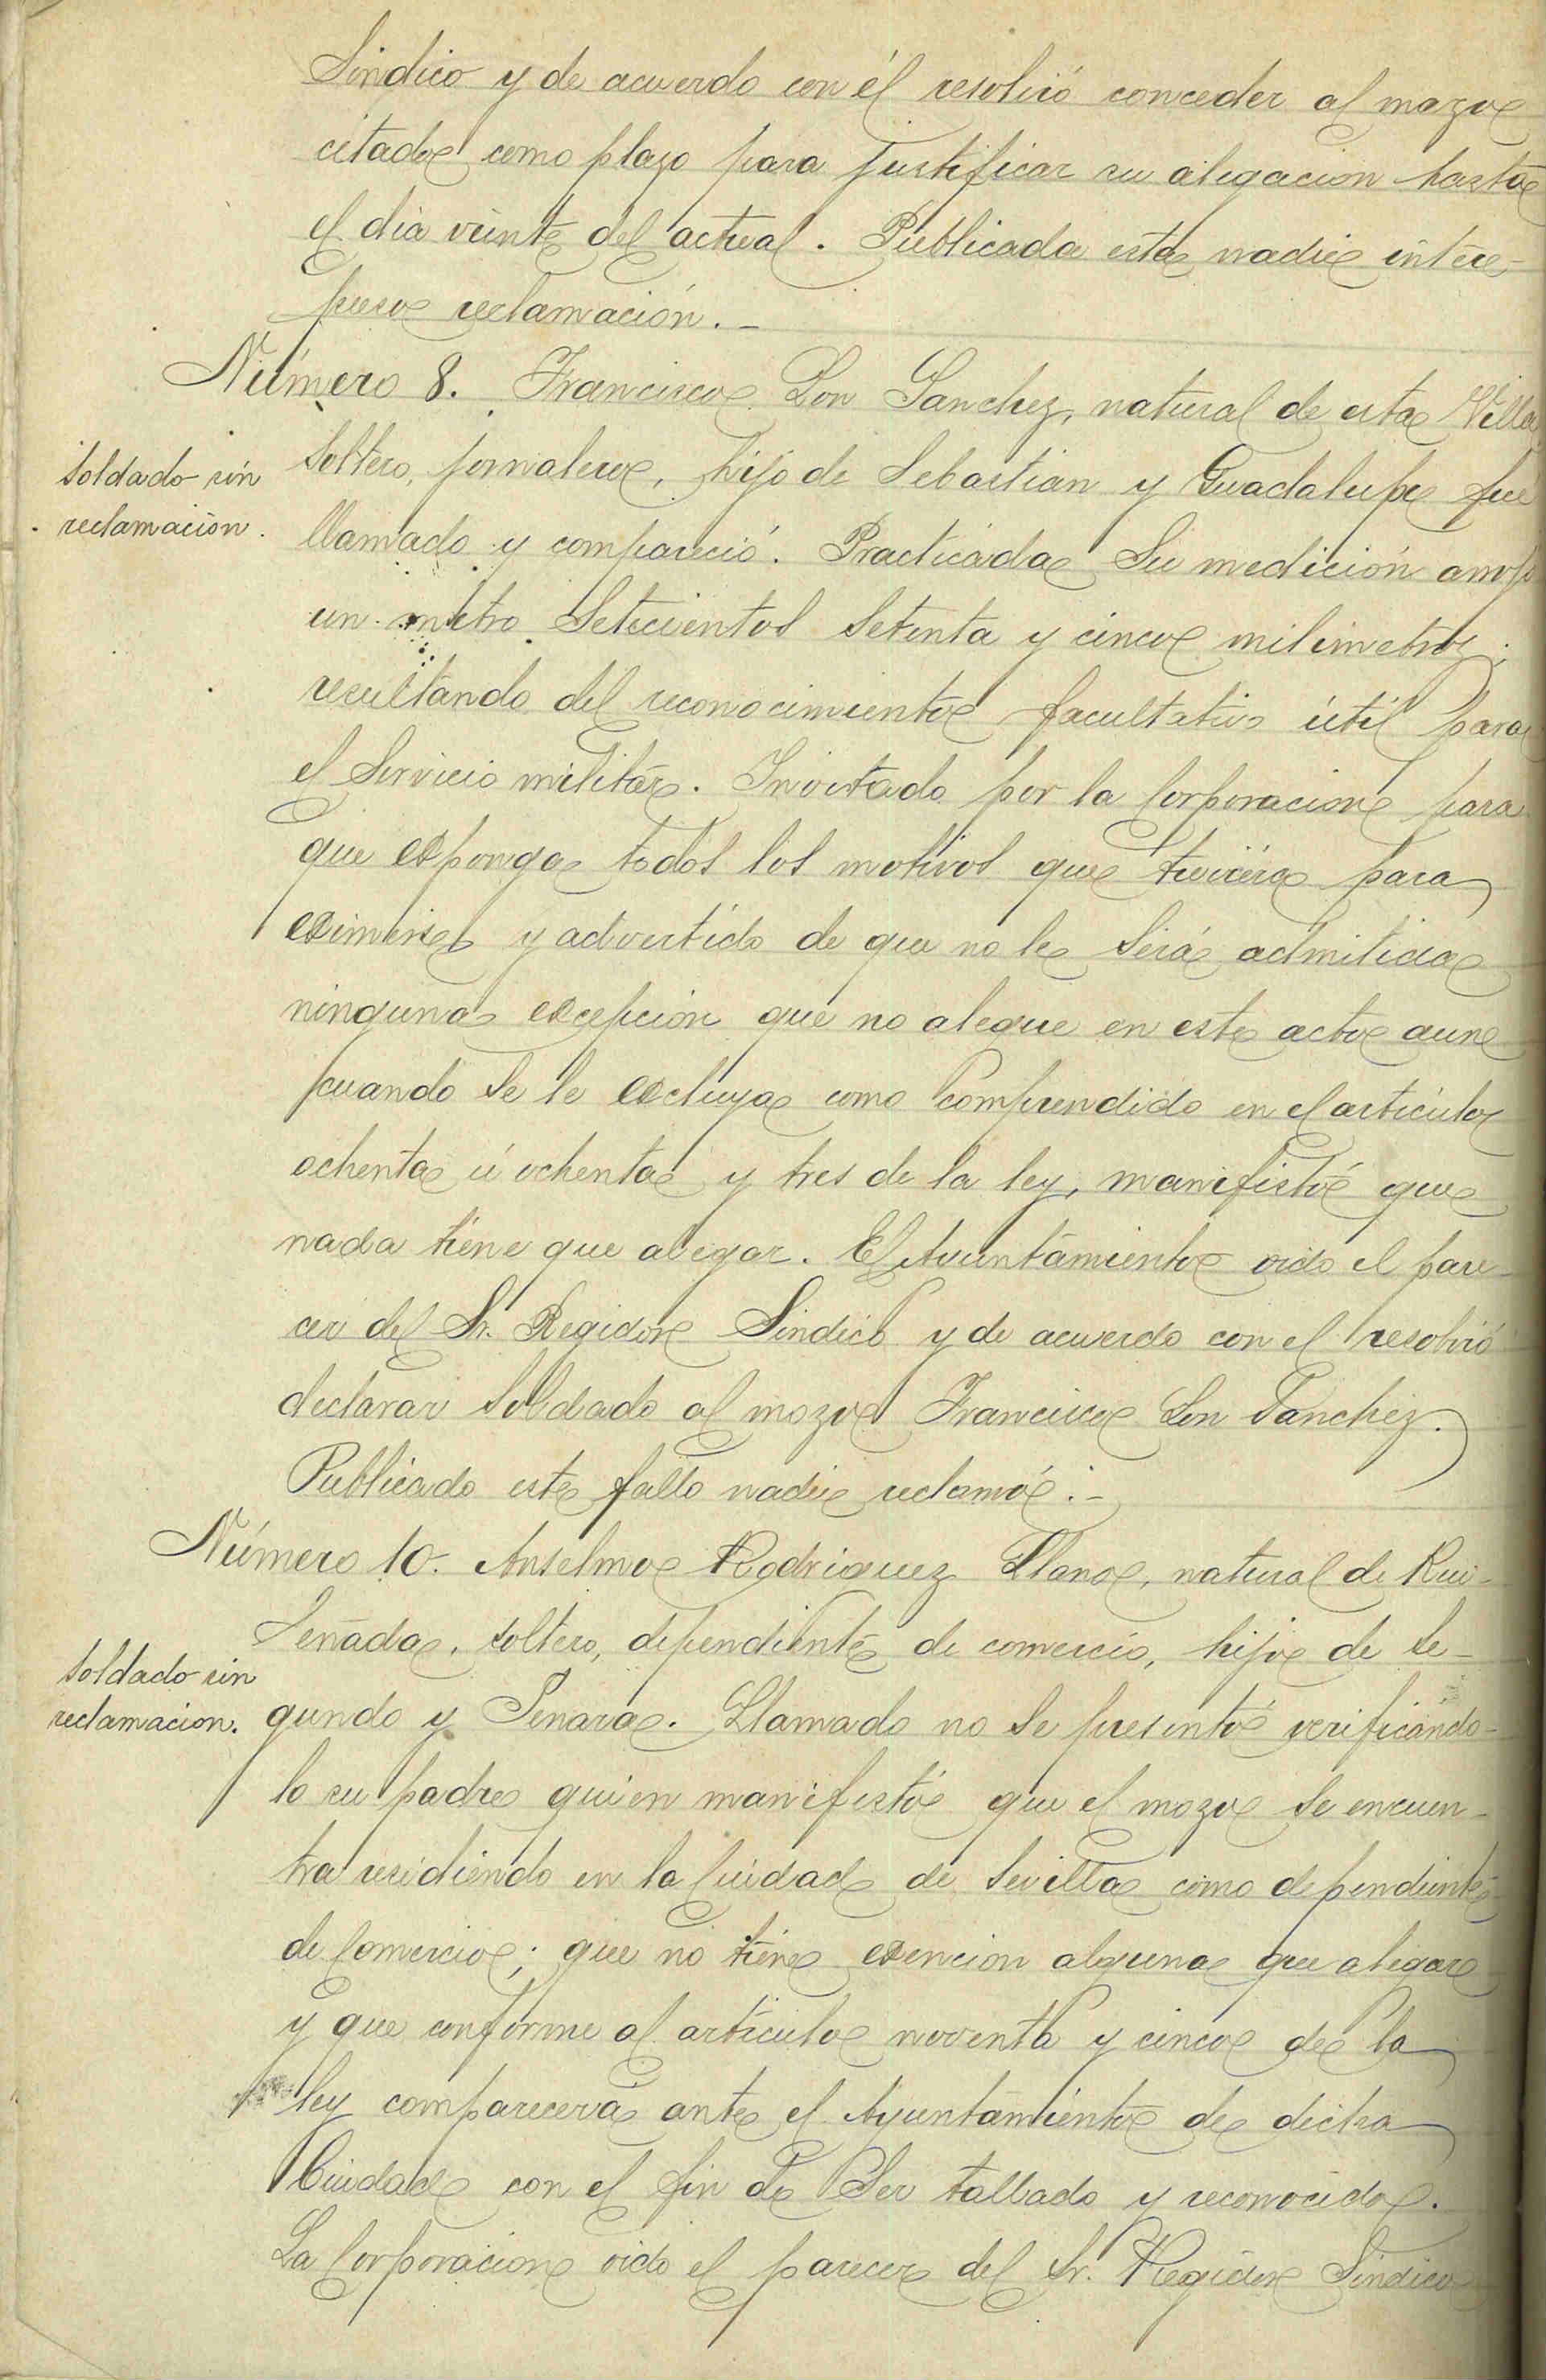 Síndico y de acuerdo con él resolvió conceder al mozo
citado como plazo para justificar su alegacion hasta
el dia veinte del actual. Publicada esta nadie inter-
puso reclamación.-
Número 8. Francisco Lon Sanchez, natural de esta Villa
soldado sin
reclamacion.
Soltero, jornalero, hijo de Sebastian y Guadalupe fue
llamado y compareció. Practicada Su medición arrojó
un metro Setecientos Setenta y cinco milimetros;
resultando del reconocimiento facultativo útil para
el Servicio militar. Invitado por la Corporacion para
que esponga todos los motivos que tuviera para
eximirse y advertido de que no le Será admitida
ninguna excepción que no alegue en este acto aun
cuando Se le excluya como Comprendido en el artículo
ochenta ú ochenta y tres de la ley, manifestó que
nada tiene que alegar. El Ayuntamiento oido el pare-
cer del Sr. Regidor Síndico y de acuerdo con el resolvió
declarar Soldado al mozo Francisco Lon Sanchez.
Publicado este fallo nadie reclamó.-
Número 10. Anselmo Rodriguez Llano, natural de Rui-
soldado sin
reclamacion.
Señada, soltero, dependiente de comercio, hijo de Se-
gundo y Genara. Llamado no Se presentó verificándo-
lo su padre quien manifestó que el mozo Se encuen-
tra residiendo en la Ciudad de Sevilla como dependiente
de Comercio; que no tiene exencion alguna que alegar
y que conforme al artículo noventa y cinco de la
ley comparecerá ante el Ayuntamiento de dicha
Ciudad con el fin de Ser tallado y reconocido.
La Corporacion oido el parecer del Sr. Regidor Síndico